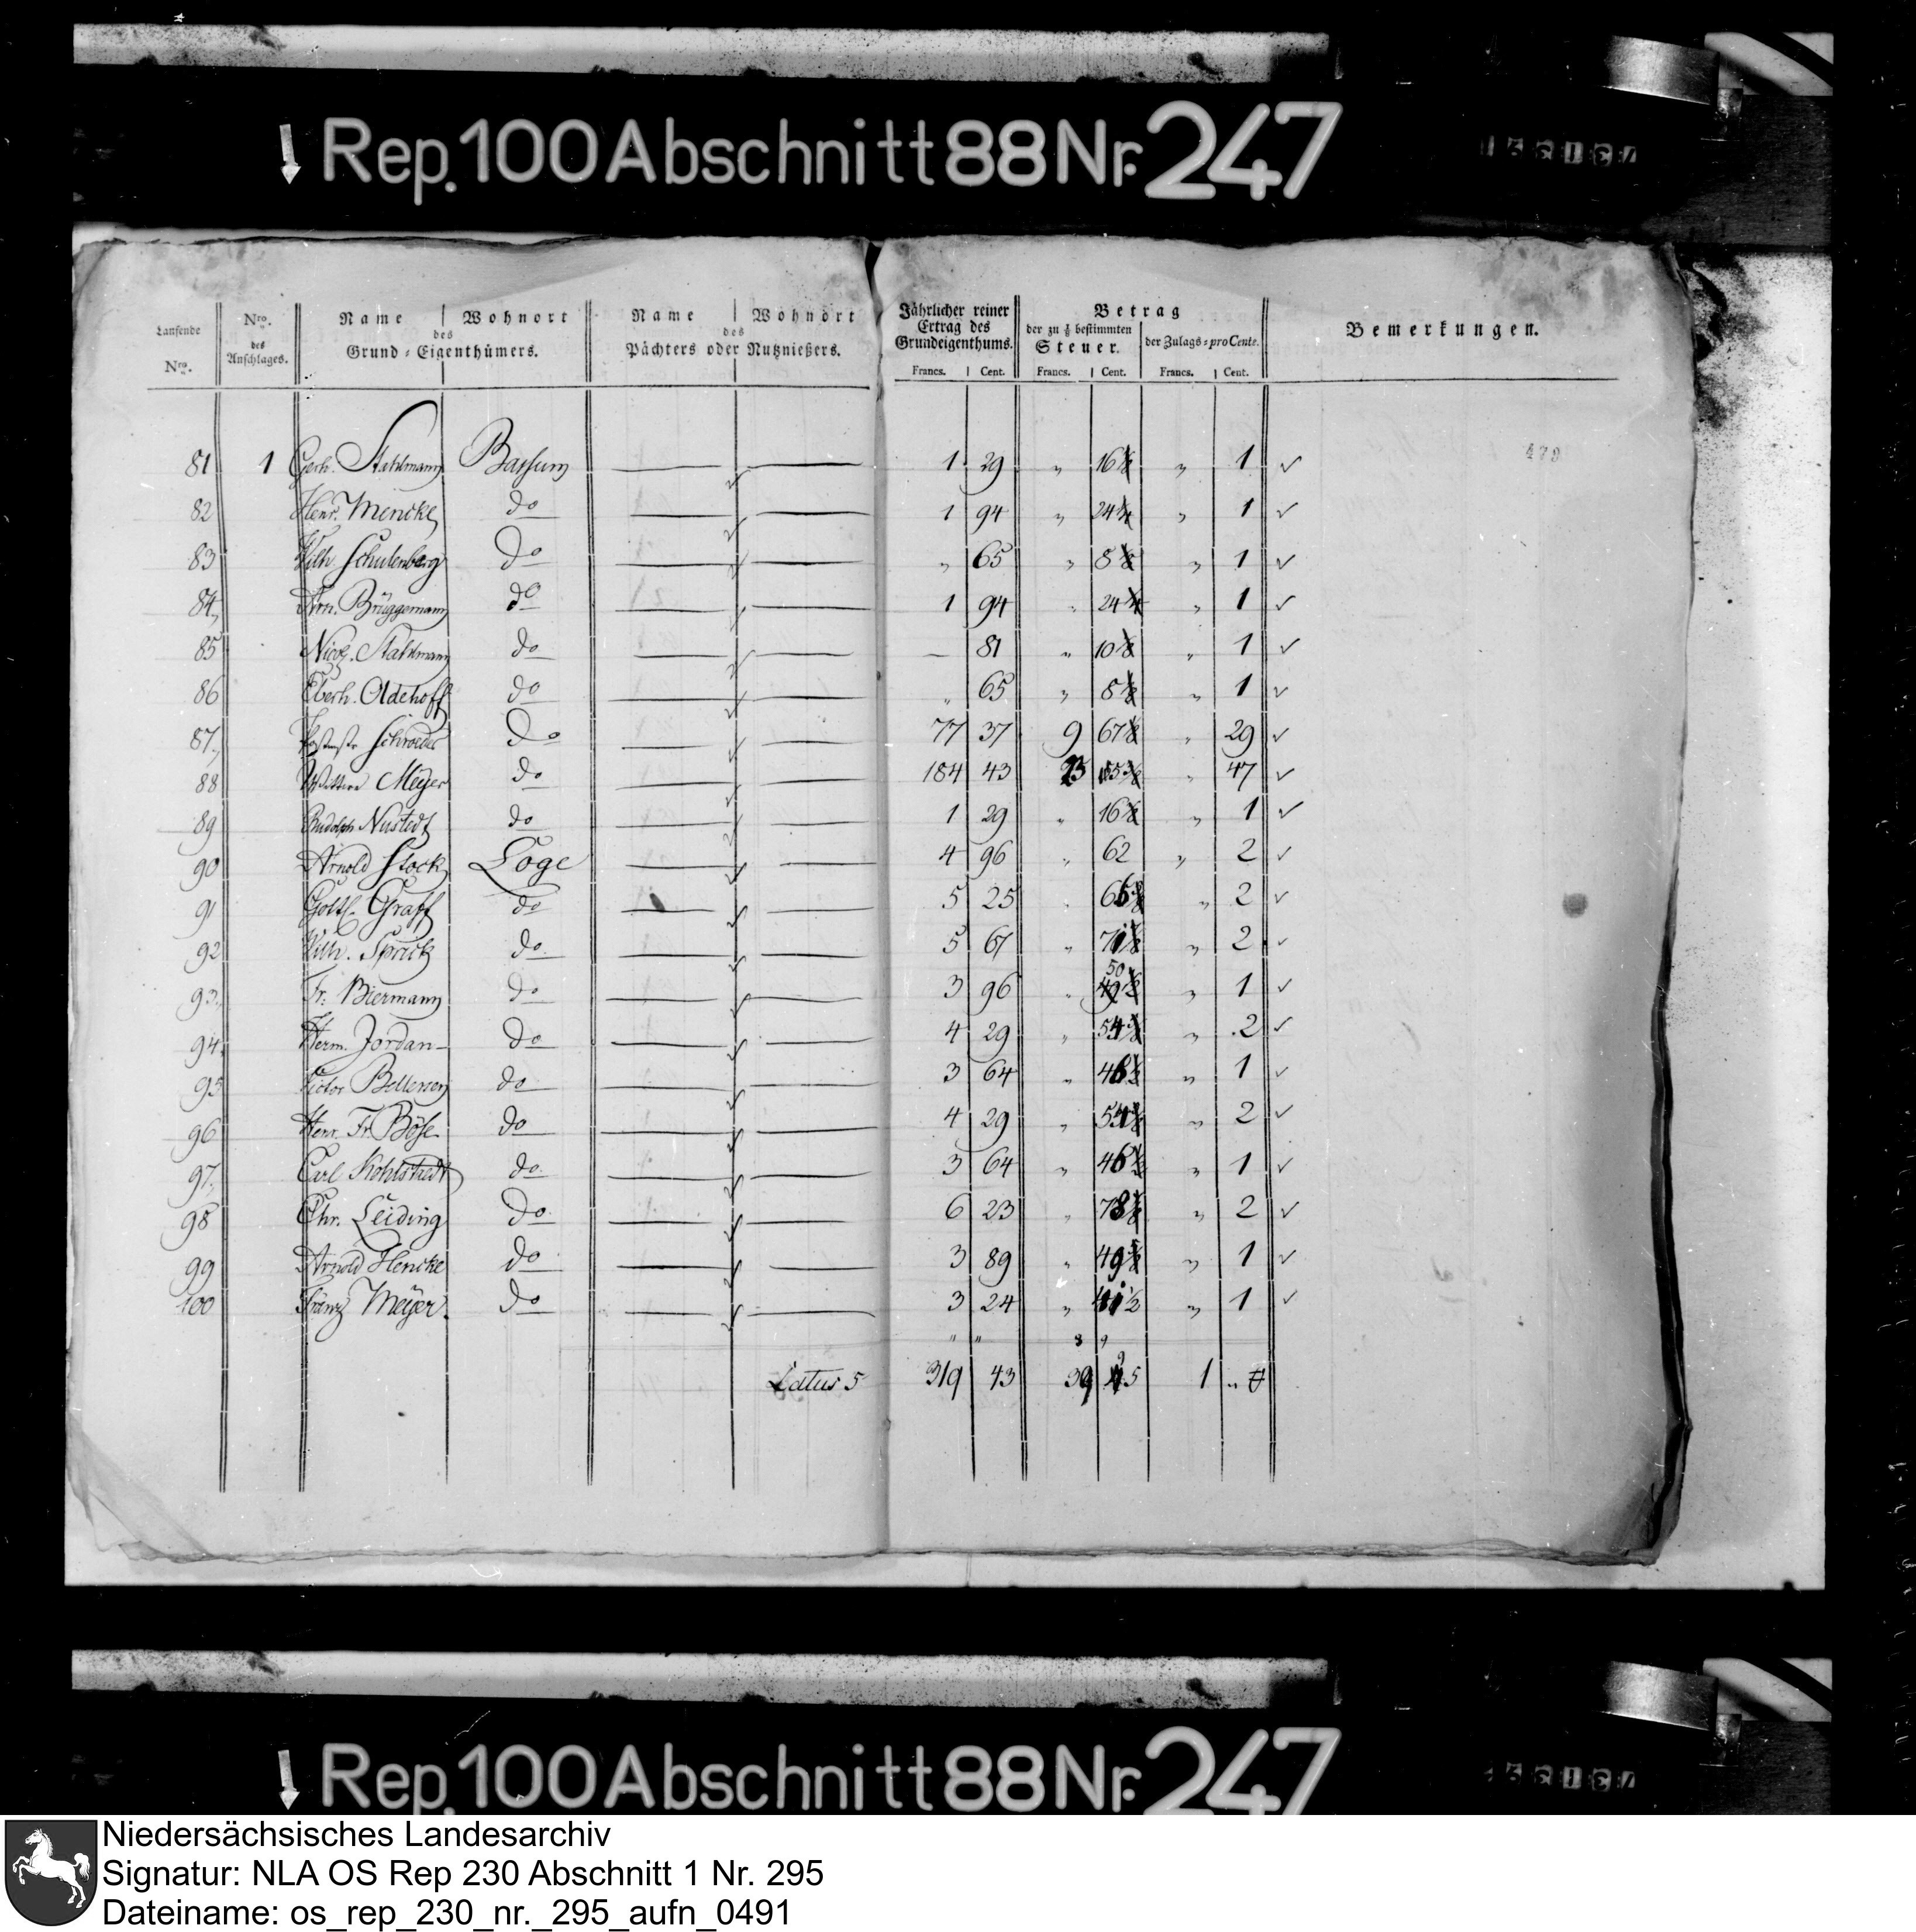 Rep. 100 Abschnitt 88 Nr. 247
Laufende Nro.
Nro. des Anschlages.
Name Wohnort
des
Grund-Eigenthümers.
Name Wohnort
des
Pächters oder Nutznießers.
Jährlicher reiner Ertrag des Grundeigenthums.
Francs. Cent.
Betrag
der zu 1/8 bestimmten Steuer.
Francs. Cent.
der Zulags-pro Cente.
Francs. Cent.
Bemerkungen.
479
81 1 Gerh. Stahlmann Bassum 1 29 „ 16 1/8 „ 1 ✓
82 Henr. Mencke do 1 94 „ 24 1/4 „ 1 ✓
83 Wilh Schulenberg do „ 65 „ 8 1/8 „ 1 ✓
84 Arn. Brüggemann do 1 94 „ 24 1/4 „ 1 ✓
85 Nicol. Stahlmann do — 81 „ 10 1/8 „ 1 ✓
86 Eberh. Oldehoff do „ 65 „ 8 1/8 „ 1 ✓
87 Schroeder do 77 37 9 67 1/8 „ 29 ✓
88 Wittwe Meyer do 184 43 23 „ 47 ✓
89 Rudolph Nustedt do 1 29 „ 16 1/8 „ 1 ✓
90 Arnold Stock Loge 4 96 „ 62 „ 2 ✓
91 Gottl. Graff do 5 25 „ 65 5/8 „ 2 ✓
92 Wilh. Sprick do 5 67 „ 71 „ 2 ✓
93 Fr. Biermann do 3 96 „ 50 „ 1 ✓
94 Herm. Jordan do 4 29 „ 54 „ 2 ✓
95 Victor Bellersen do 3 64 „ 46 „ 1 ✓
96 Henr. Fr. Böse do 4 29 „ 54 „ 2 ✓
97 Carl Kohlstaedt do 3 64 „ 46 „ 1 ✓
98 Chr. Leiding do 6 23 „ 78 „ 2 ✓
99 Arnold Hencke do 3 89 „ 49 5/8 „ 1 ✓
100 Franz Meÿer. do 3 24 „ 1/2 „ 1 ✓
Latus 5 319 43 39 1
Rep. 100 Abschnitt 88 Nr. 247
Niedersächsisches Landesarchiv
Signatur: NLA OS Rep 230 Abschnitt 1 Nr. 295
Dateiname: os_rep_230_nr._295_aufn_0491